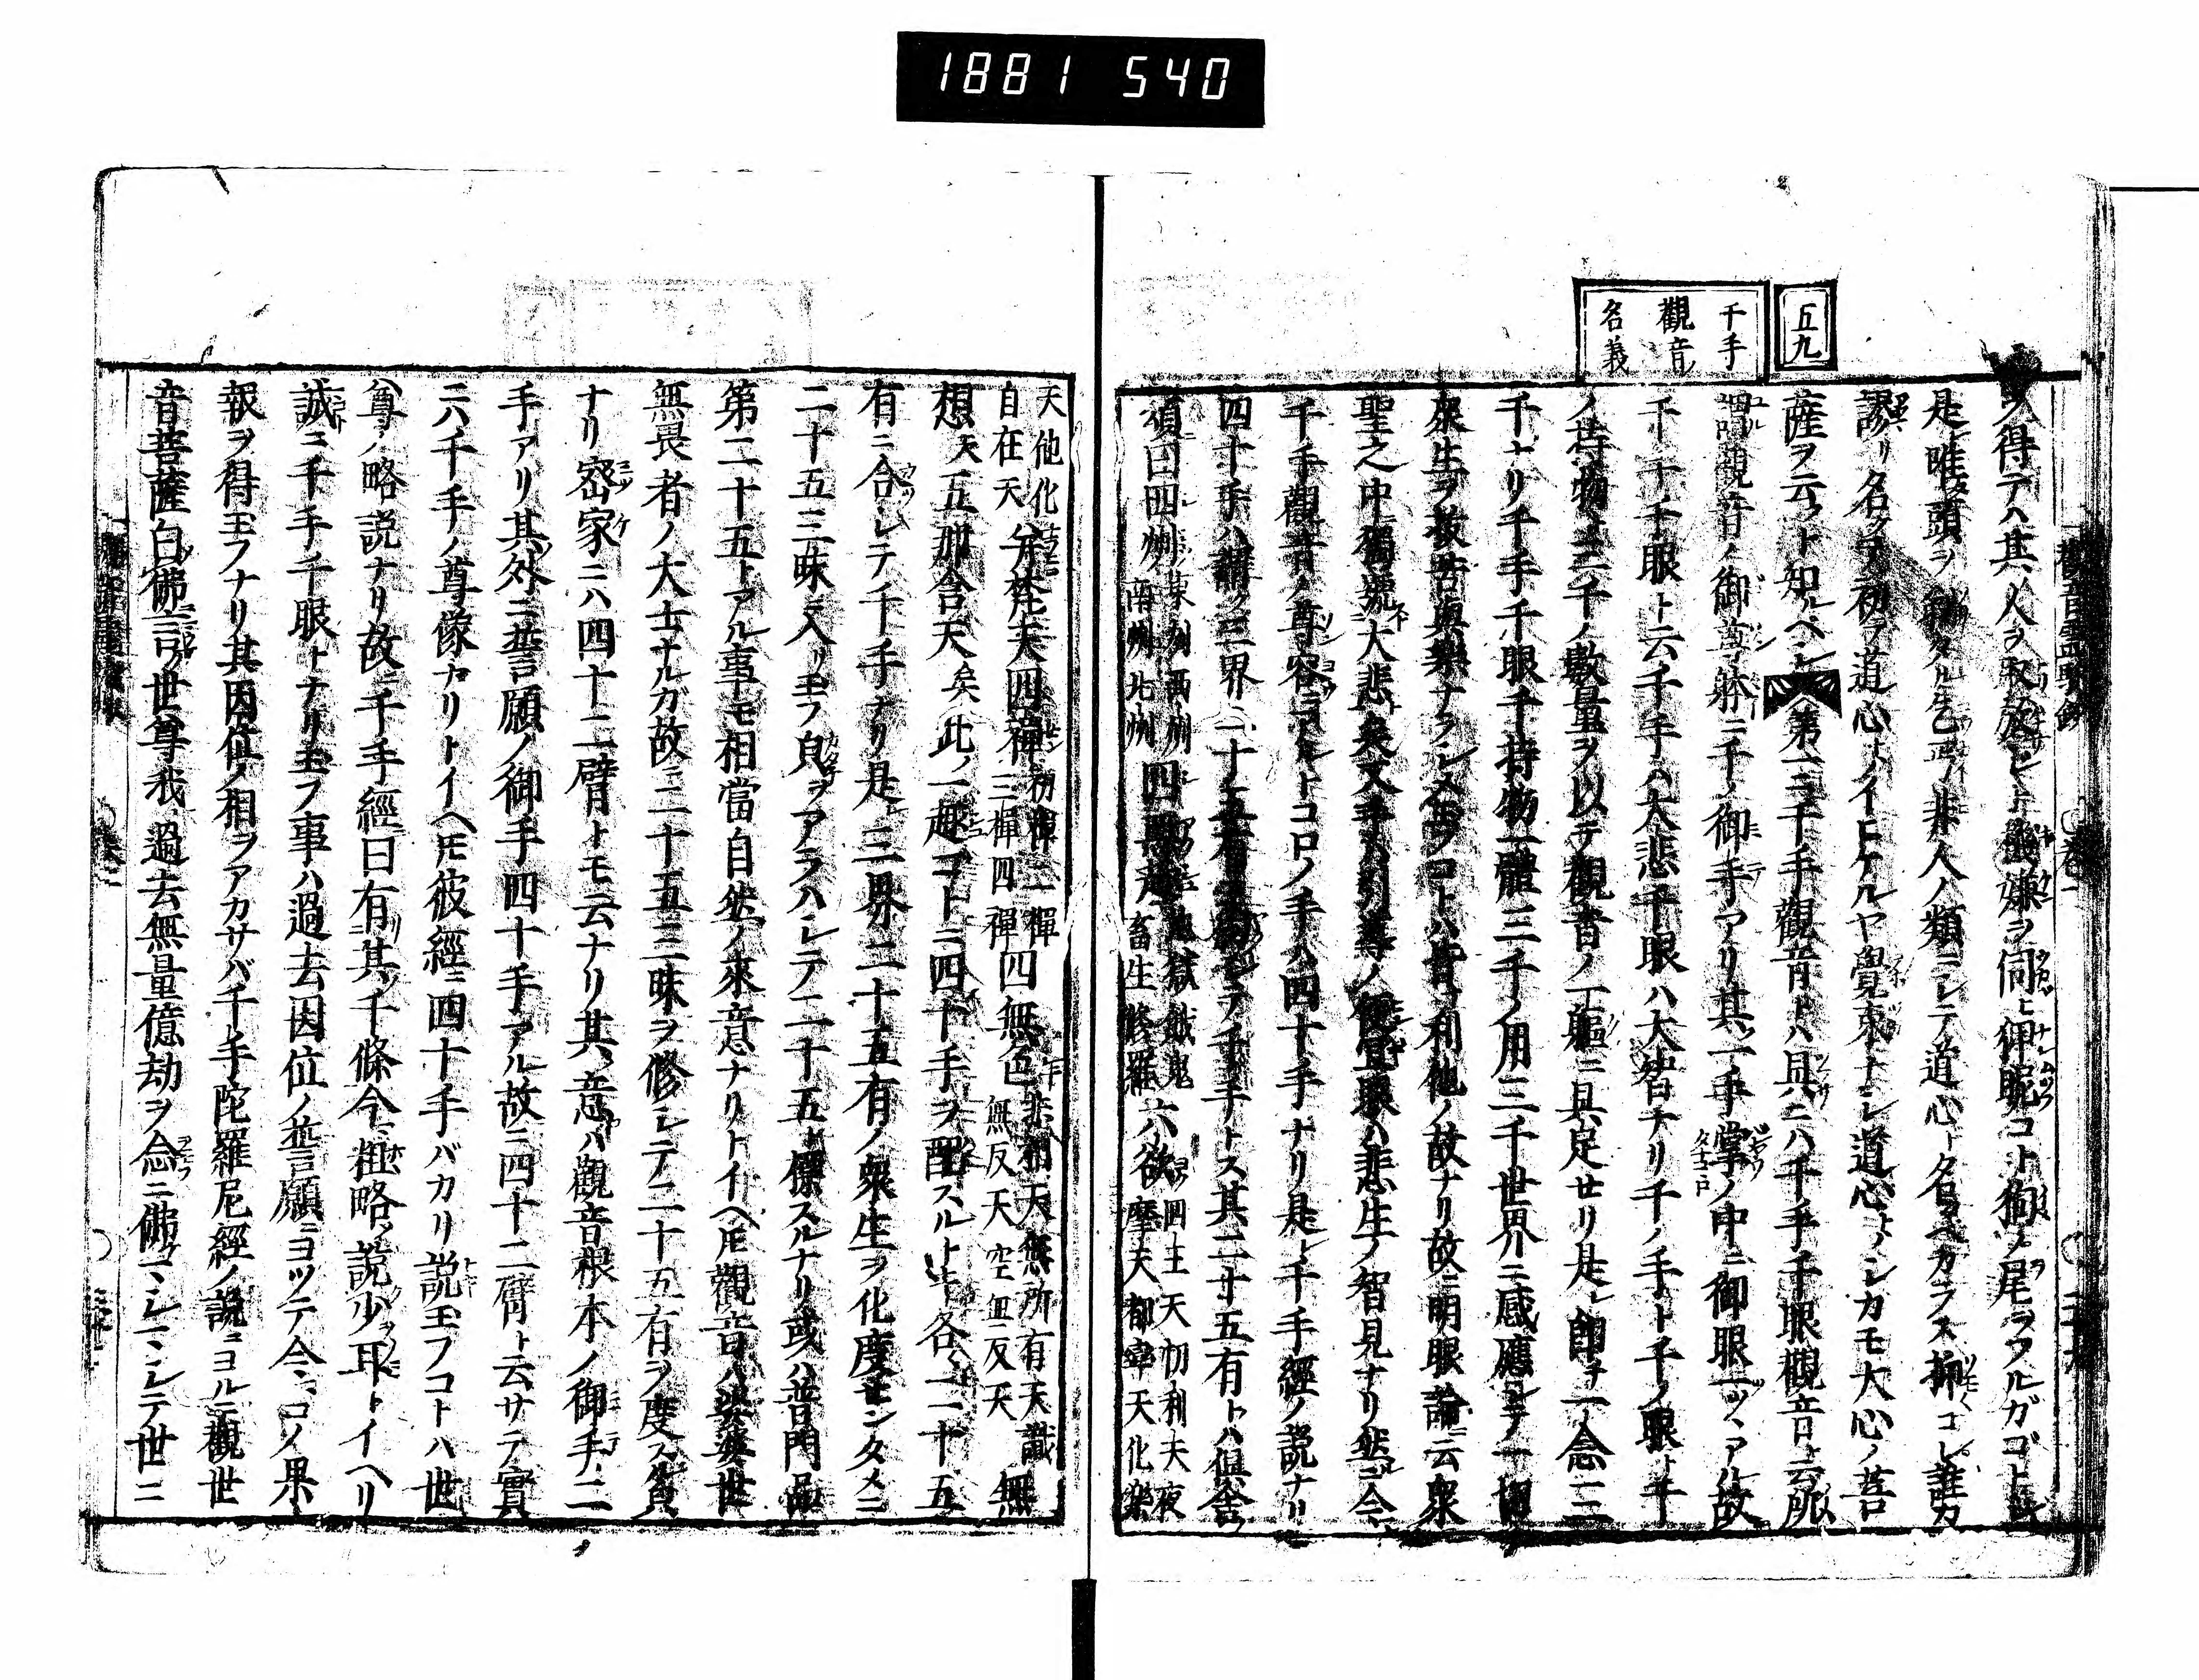 1881 540
五九
千手
觀音
名義
ヲ得テハ其人ヲ取放シト機嫌ヲ伺ヒ御昵コト狗ノ尾ヲフルガゴトシ
是唯頭ヲ剃タル乞丐非人ノ類ニシテ道心ト名ヅベカラス抑コレ誰カ
謬リ名ケテ初テ道心トイヒケルヤ覺束ナシ道心トハシカモ大心ノ菩
薩ヲ云フト知ルベシ
第二千手觀音トハ具ニハ千手千眼觀音ト云
謂觀音ノ御尊躰ニ千ノ御手アリ其一手掌ノ中ニ御眼一ツヽアル故
千手千眼ト云千手ハ大悲千眼ハ大智ナリ千ノ手ト千ノ眼ト千
ノ持物ト三千ノ數量ヲ以テ觀音ノ一軀ニ具足セリ是レ即チ一念三
千ナリ千手千眼千持物一體三千ノ用三千世界ニ感應シテ一切
衆生ヲ拔苦與樂ナラシメ玉フコトハ皆利他ノ故ナリ故ニ明眼論云衆
聖之中獨號大悲矣又手ハ引導ノ便宜眼ハ悲生ノ智見ナリ然ニ今
千手觀音ノ尊容ニトコロノ手ハ四十手ナリ是レ千手經ノ説ナリ
四十手ハ謂ク三界二十五有ヲ千手トス其二十五有トハ倶舍
頌曰四州東州西州南州北州四惡趣地獄餓鬼畜生修羅六欲四王天忉利天夜摩天都率天化樂
天他化自在天并梵天四禪初禪二禪三禪四禪四無色非想天無所有天識無反天空無反天無
想天五那含天矣此ノ一趣ゴトニ四十手ヲ配スルトキ各二十五
有ニ合シテ千手ナリ是レ三界二十五有ノ衆生ヲ化度センタメニ
二十五三昧ニ入リ玉フ皃ヲアラハシテ二十五ト標スルナリ或ハ普門品
第二十五トアル事トモ相當自然ノ來意ナリトイヘ𪜈觀音ハ娑婆世
無畏者ノ大士ナルガ故ニ二十五三昧ヲ修シテ二十五有ヲ度ス
ナリ密家ニハ四十二臂トモ云ナリ其意ハ觀音根本ノ御手二
手アリ其外ニ誓願ノ御手四十手アル故ニ四十二臂ト云サテ實
ニハ千手ノ尊像ナリトイヘ𪜈彼經ニ四十手バカリ説玉フコトハ世
尊ノ略説ナリ故ニ千手經曰有其千條今粗略説少耳トイヘリ
誠ニ千手千眼トナリ玉フ事ハ過去因位ノ誓願ニコツテ今コノ果
報ヲ得玉フナリ其因位ノ相ヲアカサバ千手陀羅尼經ノ説ニヨルニ觀世
音菩薩白佛言世尊我過去無量億劫ヲ念ニ佛マシマシテ世ニ